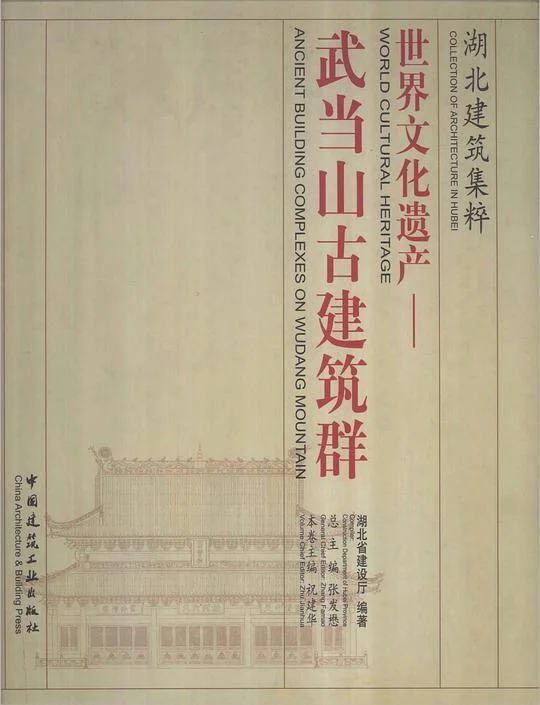 湖北建筑集粹
COLLECTION OF ARCHITECTURE IN HUBEI
世界文化遗产——
WORLD CULTURAL HERITAGE
武当山古建筑群
ANCIENT BUILDING COMPLEXES ON WUDANG MOUNTAIN
湖北省建设厅 编著
Compiler:
Construction Department of Hubei Province
总主编 张发懋
General Chief Editor: Zhang Famao
本卷主编 祝建华
Volume Chief Editor: Zhu Jianhua
中国建筑工业出版社
China Architecture & Building Press